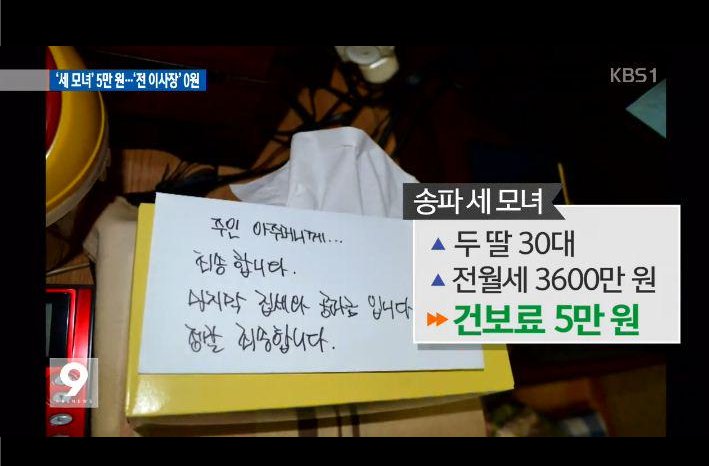 '세 모녀' 5만 원…'전 이사장' 0원
KBS1
송파 세 모녀
▲ 두 딸 30대
▲ 전월세 3600만 원
건보료 5만 원
주인 아주머니께...
죄송합니다.
마지막 집세와 공과금 입니다
정말 죄송합니다.
9